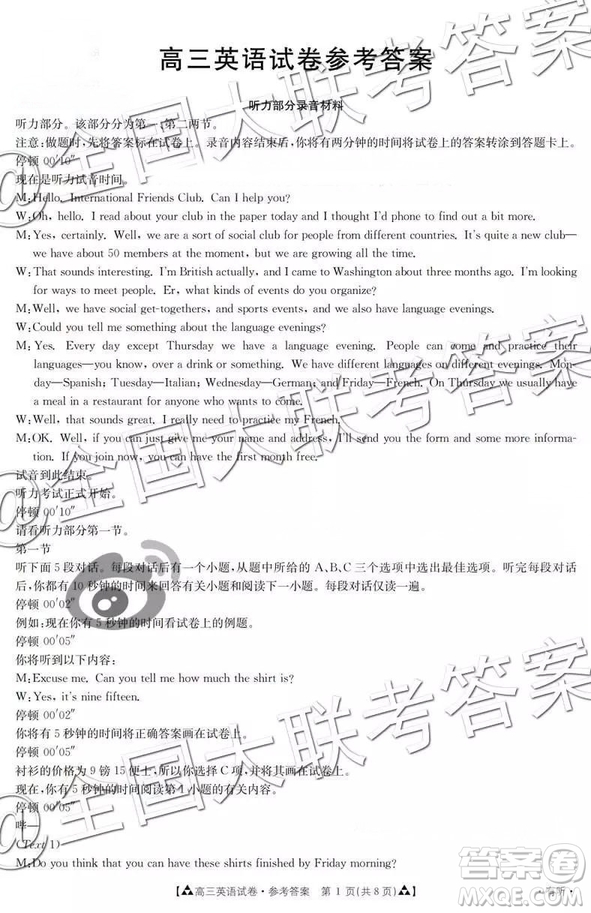 高三英语试卷参考答案
听力部分录音材料
听力部分。该部分分为第一、第二两节。
注意:做题时,先将答案标在试卷上。录音内容结束后,你将有两分钟的时间将试卷上的答案转涂到答题卡上。
停顿 00′10″
现在是听力试音时间。
M: Hello. International Friends Club. Can I help you?
W: Oh, hello. I read about your club in the paper today and I thought I'd phone to find out a bit more.
M: Yes, certainly. Well, we are a sort of social club for people from different countries. It's quite a new club—
we have about 50 members at the moment, but we are growing all the time.
W: That sounds interesting. I'm British actually, and I came to Washington about three months ago. I'm looking
for ways to meet people. Er, what kinds of events do you organize?
M: Well, we have social get-togethers, and sports events, and we also have language evenings.
W: Could you tell me something about the language evenings?
M: Yes. Every day except Thursday we have a language evening. People can come and practice their
languages—you know, over a drink or something. We have different languages on different evenings. Mon-
day—Spanish; Tuesday—Italian; Wednesday—German; and Friday—French. On Thursday we usually have
a meal in a restaurant for anyone who wants to come.
W: Well, that sounds great. I really need to practice my French.
M: OK. Well, if you can just give me your name and address, I'll send you the form and some more informa-
tion. If you join now, you can have the first month free.
试音到此结束。
听力考试正式开始。
停顿 00′10″
请看听力部分第一节。
第一节
听下面 5 段对话。每段对话后有一个小题,从题中所给的 A、B、C 三个选项中选出最佳选项。听完每段对话
后,你都有 10 秒钟的时间来回答有关小题和阅读下一小题。每段对话仅读一遍。
停顿 00′02″
例如:现在你有 5 秒钟的时间看试卷上的例题。
停顿 00′05″
你将听到以下内容:
M: Excuse me. Can you tell me how much the shirt is?
W: Yes, it's nine fifteen.
停顿 00′02″
你将有 5 秒钟的时间将正确答案画在试卷上。
停顿 00′05″
衬衫的价格为 9 镑 15 便士,所以你选择 C 项,并将其画在试卷上。
现在,你有 5 秒钟的时间阅读第 1 小题的有关内容。
停顿 00′05″
哔—
(Text 1)
M: Do you think you can have these shirts finished by Friday morning?
高三英语试卷·参考答案 第 1 页(共 8 页)
@全国大联考答案
答案圈